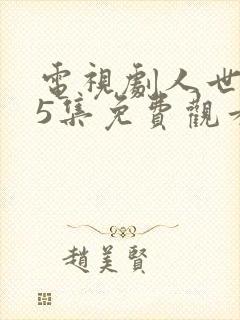 電視劇人世
5集免費觀看
趙美賢